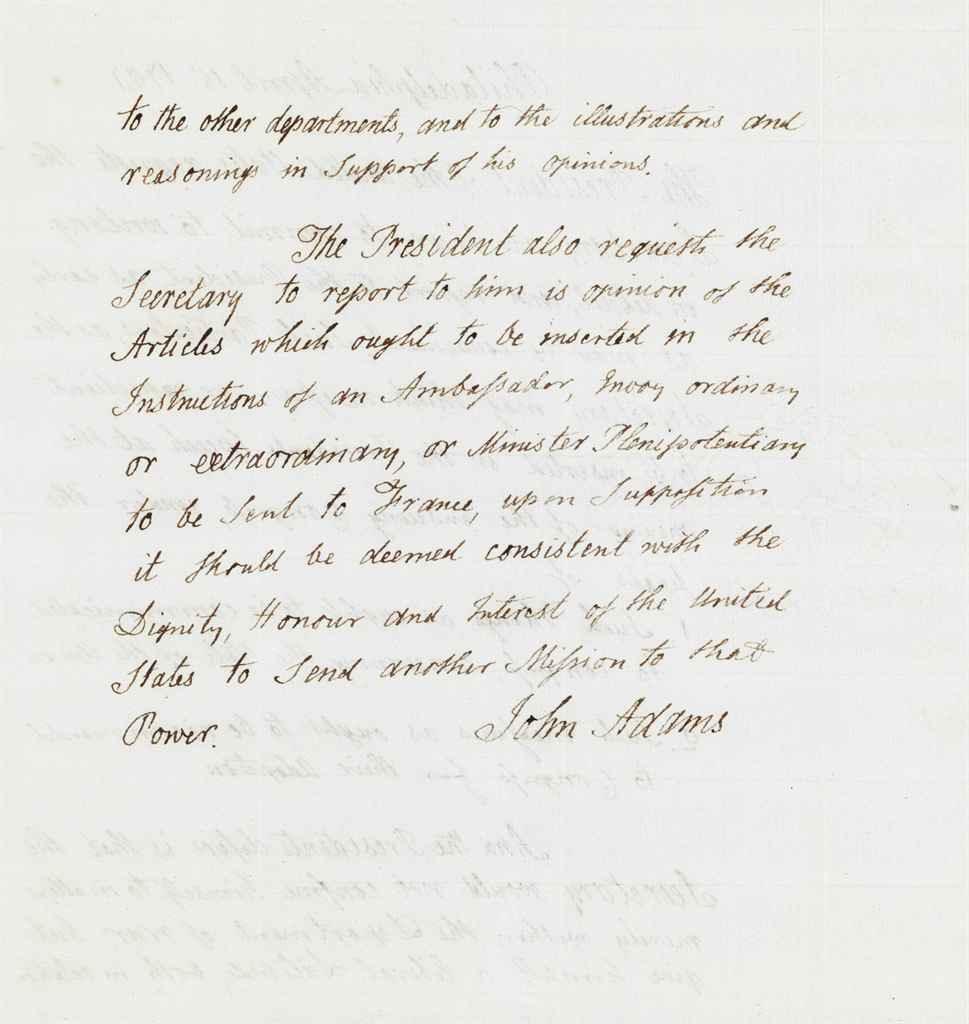 to the other departments, and to the illustrations and
reasonings in Support of his opinions.
The President also requests the
Secretary to report to him is opinion of the
Articles which ought to be inserted in the
Instructions of an Ambassador, Envoy ordinary
or extraordinary, or Minister Plenipotentiary
to be Sent to France, upon Supposition
it should be deemed consistent with the
Dignity, Honour and Interest of the United
States to Send another Mission to that
Power.
John Adams